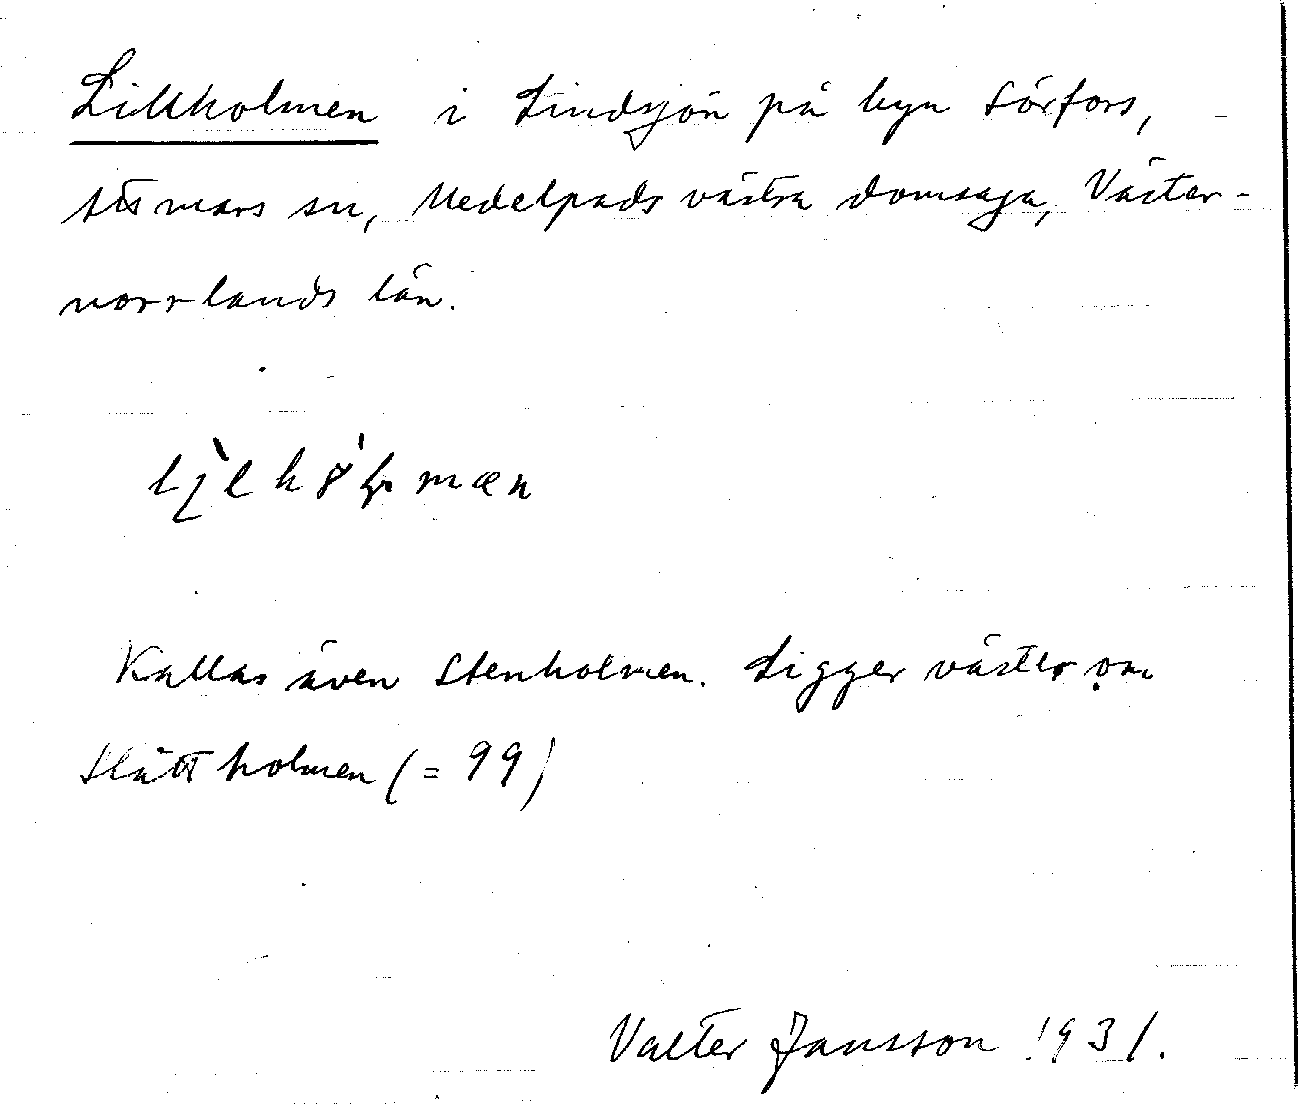 Lillholmen i Lindsjön på byn Sörfors,
Attmars sn, Medelpads västra domsaga, Väster-
norrlands län.
Kallas även Stenholmen. Ligger väster om
Slättholmen (= 99)
Valter Jansson 1931.